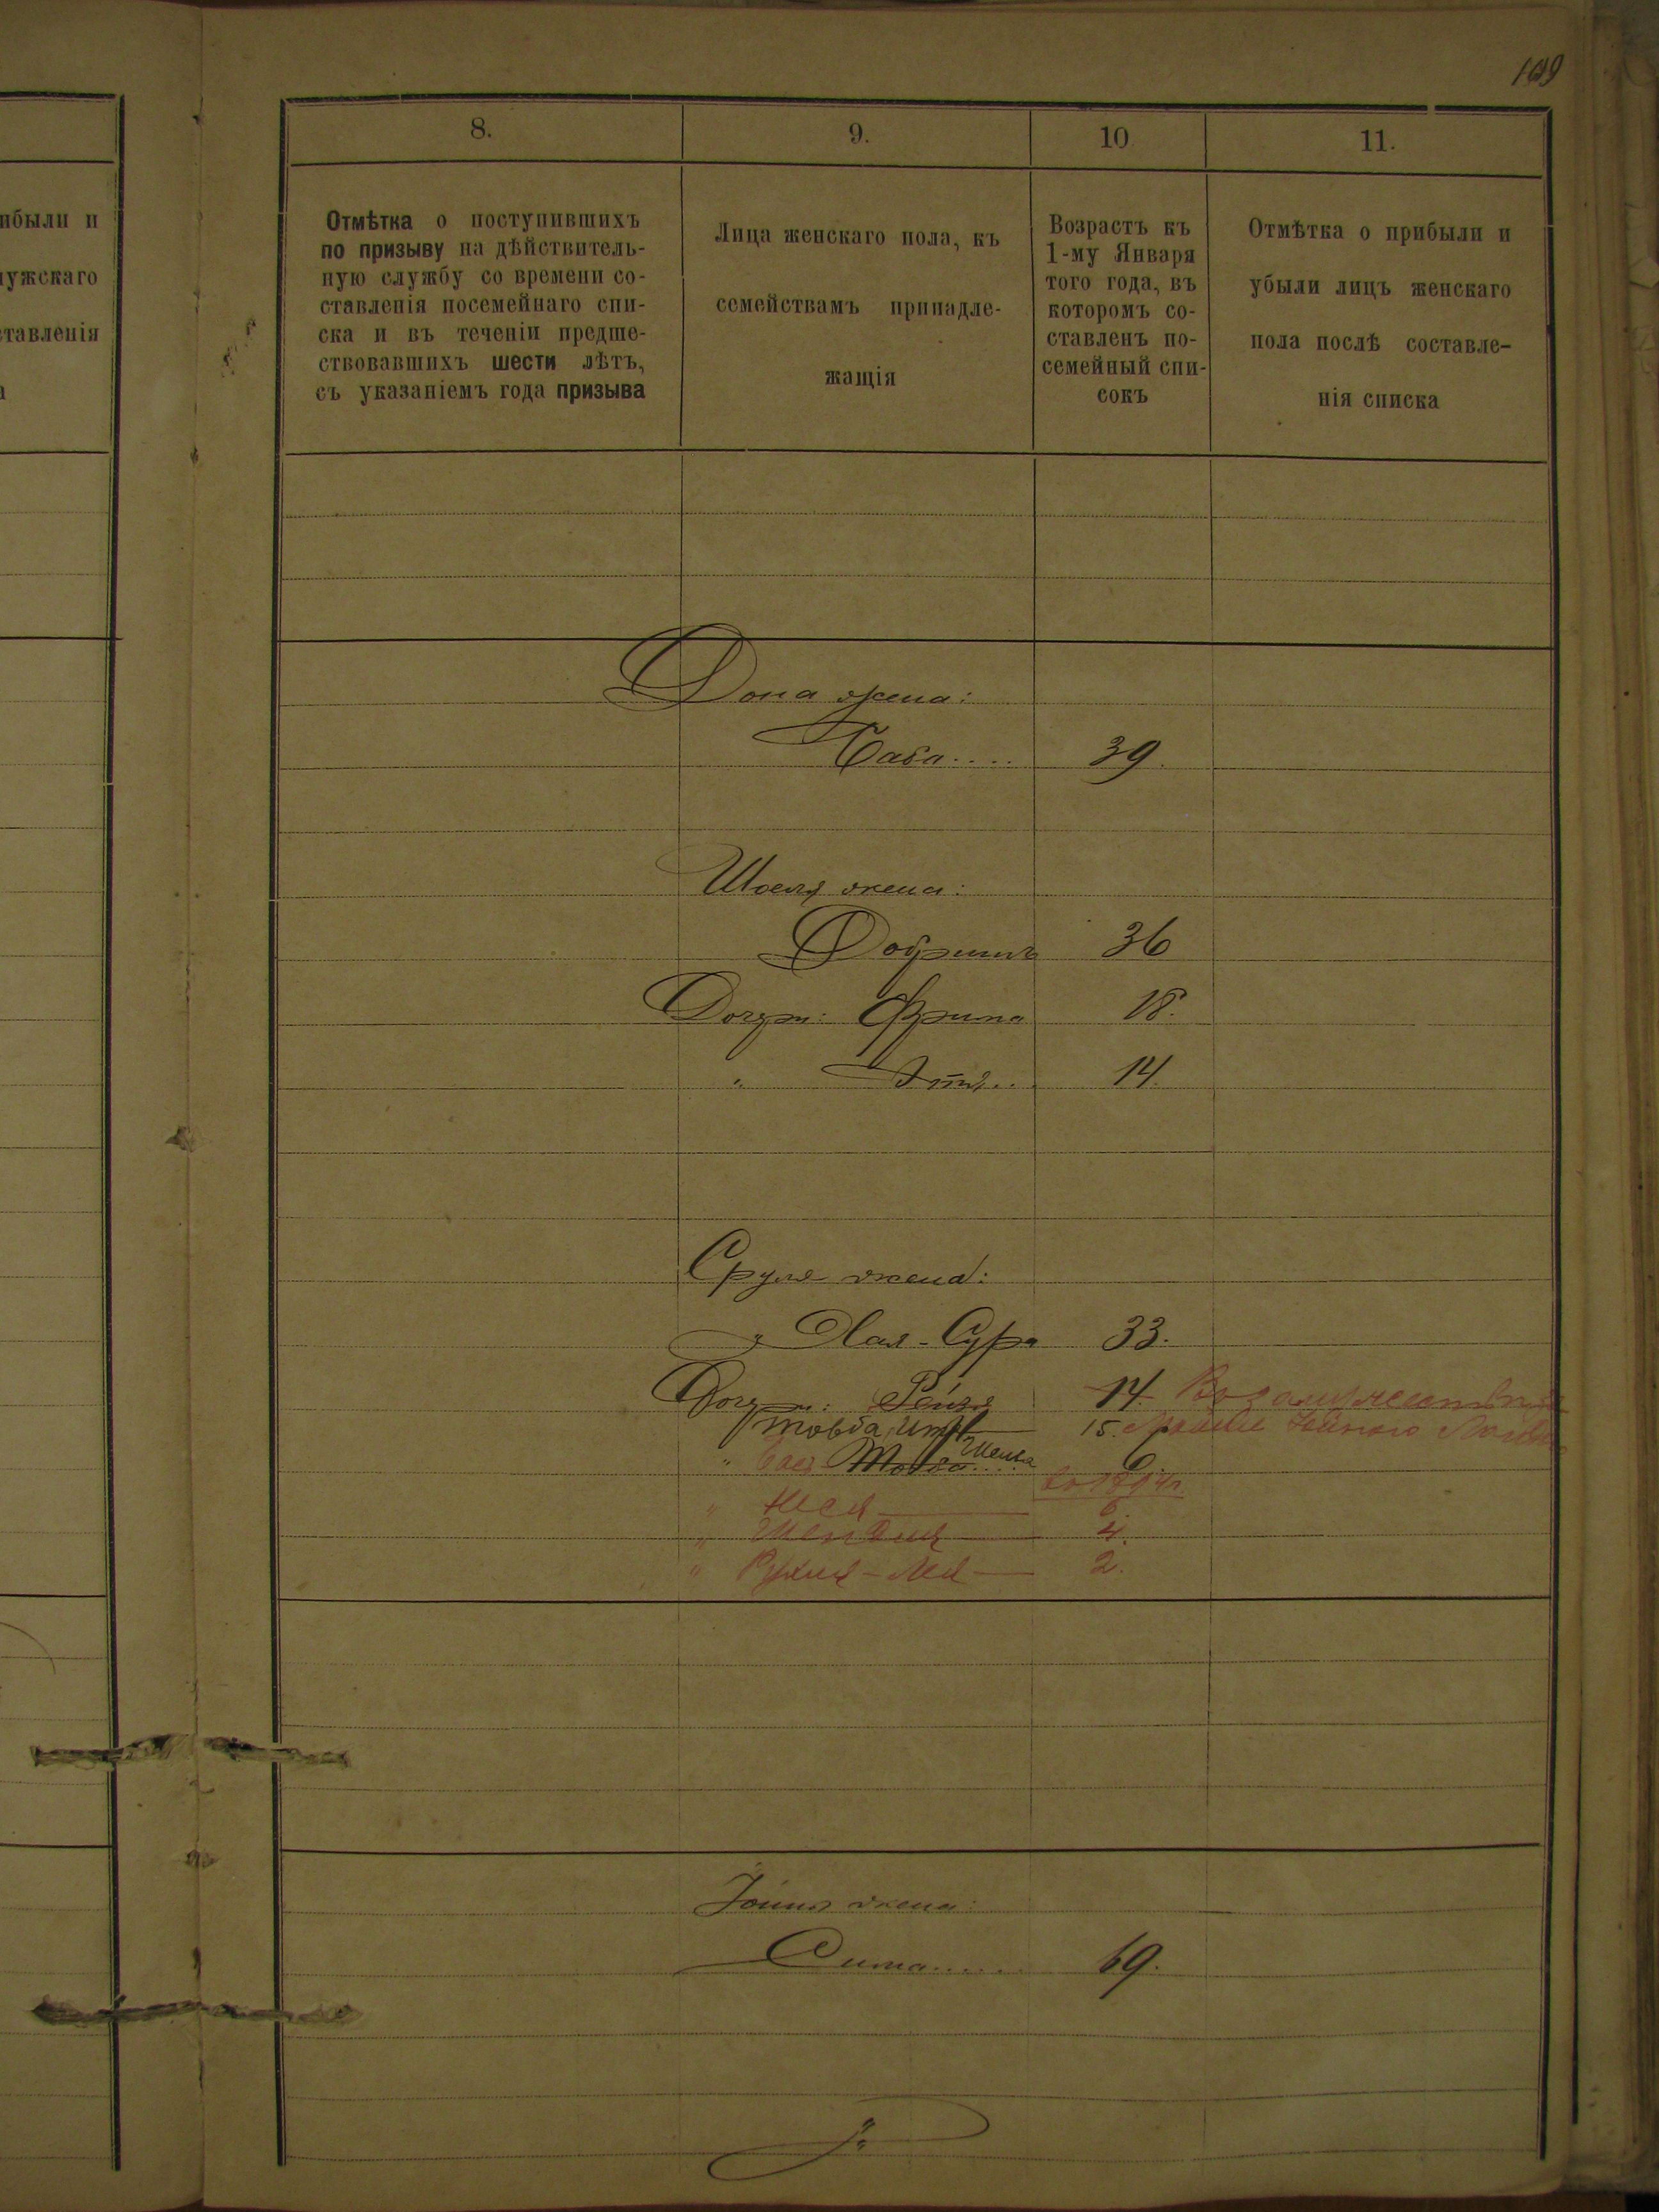 109
8.
9.
10
11.
Отмѣтка о поступившихъ
по призыву на дѣйствитель-
ную службу со времени со-
ставленія посемейнаго спи-
ска и въ теченіи предше-
ствовавшихъ шести лѣтъ,
съ указаніемъ года призыва
Лица женскаго пола, къ
семействамъ принадле-
жащія
Возрастъ къ
1-му Января
того года, въ
которомъ со-
ставленъ по-
семейный спи-
сокъ
Отмѣтка о прибыли и
убыли лицъ женскаго
пола послѣ составле-
нія списка
ибыли и
ужскаго
ставленія
Дона жена:
Баба.... 39.
жена:
36
Дочери: Фрима 18.
" Этя.. 14.
Сруля жена:
Хая-Сура 33.
Дочери: Рейзя 14.
Товба, 15.
" Това.... 6.
Неся 6
" 4.
" Рухля-Лея 2.
жена:
Сима..... 69.